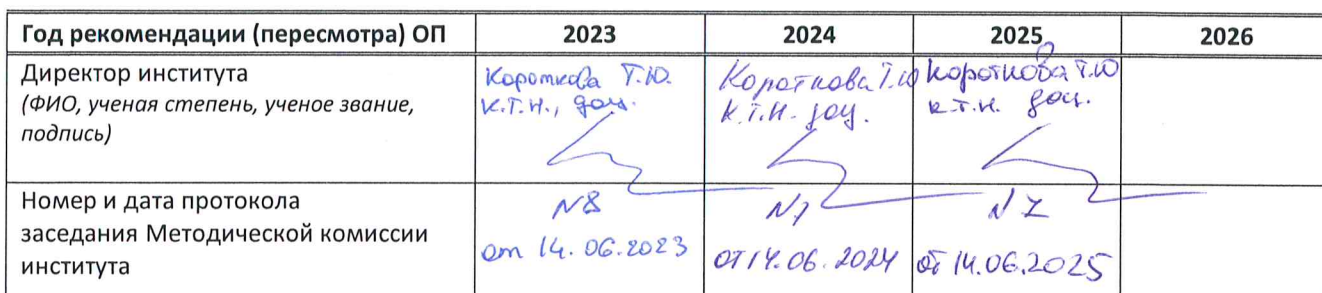 Год рекомендации (пересмотра) ОП 2023 2024 2025 2026
Директор института
(ФИО, ученая степень, ученое звание,
подпись)
Короткова Т.Ю.
к.т.н., доц.
Короткова Т.Ю
к.т.н. доц.
Короткова Т.Ю
к.т.н. доц.
Номер и дата протокола
заседания Методической комиссии
института
№8
от 14.06.2023
от 14.06.2024
от 14.06.2025